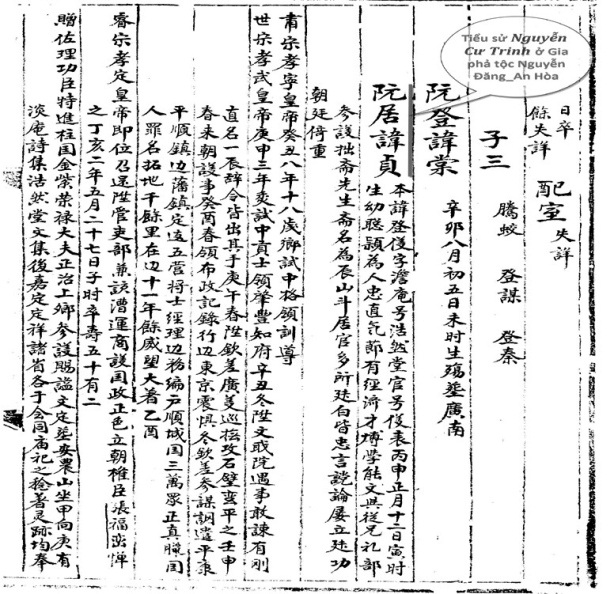 Tiểu sử Nguyễn
Cư Trinh ở Gia
phả tộc Nguyễn
Đăng_An Hòa
日卒
餘失詳
配室 失詳
子三
騰蛟 登謀 登秦
阮登諱棠 辛卯八月初五日未时生殤塟廣南
阮居諱貞 本諱登後字澹庵号浩然堂官号後表丙申正月十二日寅时
生幼聰穎為人忠直氣節有經济才博學能文與從兄礼部
參謀拙斎先生斎名為辰山斗居官多所建白皆忠言讜論屢立廷功
朝廷倚重
肅宗孝寧皇帝癸丑八年十八歲鄉試中格領訓導
世宗孝武皇帝庚申三年爽試中貢士領肇豐知府辛丑冬陞文職院遇事敢諫有剛
直名一辰辞令皆出其手庚午春陞欽差廣義巡撫攻石壁蠻平之壬申
春来朝議事癸酉春領布政記錄行辺東京震惧冬欽差參謀調遣平康
平順鎮辺藩鎮定遠五营将士經理辺務編户順城国三萬眾正真臘国
人罪名拓地千餘里在辺十一年餘威望大著乙酉
睿宗孝定皇帝即位召還陞管吏部兼該漕運商護国政正色立朝権臣張福巒惮
之丁亥二年五月二十七日子时卒壽五十有二
贈佐理功臣特進柱国金紫榮禄大夫正治上卿參議賜謚文定塟安農山坐甲向庚有
淡庵詩集浩然堂文集後嘉定定祥諸省各于会同庙祀之 著灵跡均奉